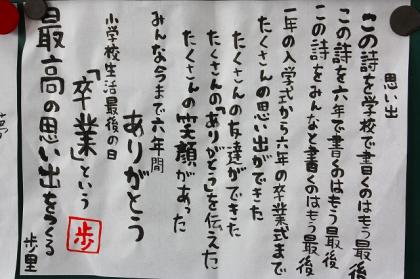 思い出
この詩を学校で書くのはもう最後
この詩を六年で書くのはもう最後
この詩をみんなと書くのはもう最後
一年の入学式から六年の卒業式まで
たくさんの思い出ができた
たくさんの友達ができた
たくさんの「ありがとう」を伝えた
たくさんの笑顔があった
みんな今まで六年間
ありがとう
小学校生活最後の日
「卒業」という
最高の思い出をつくる
歩